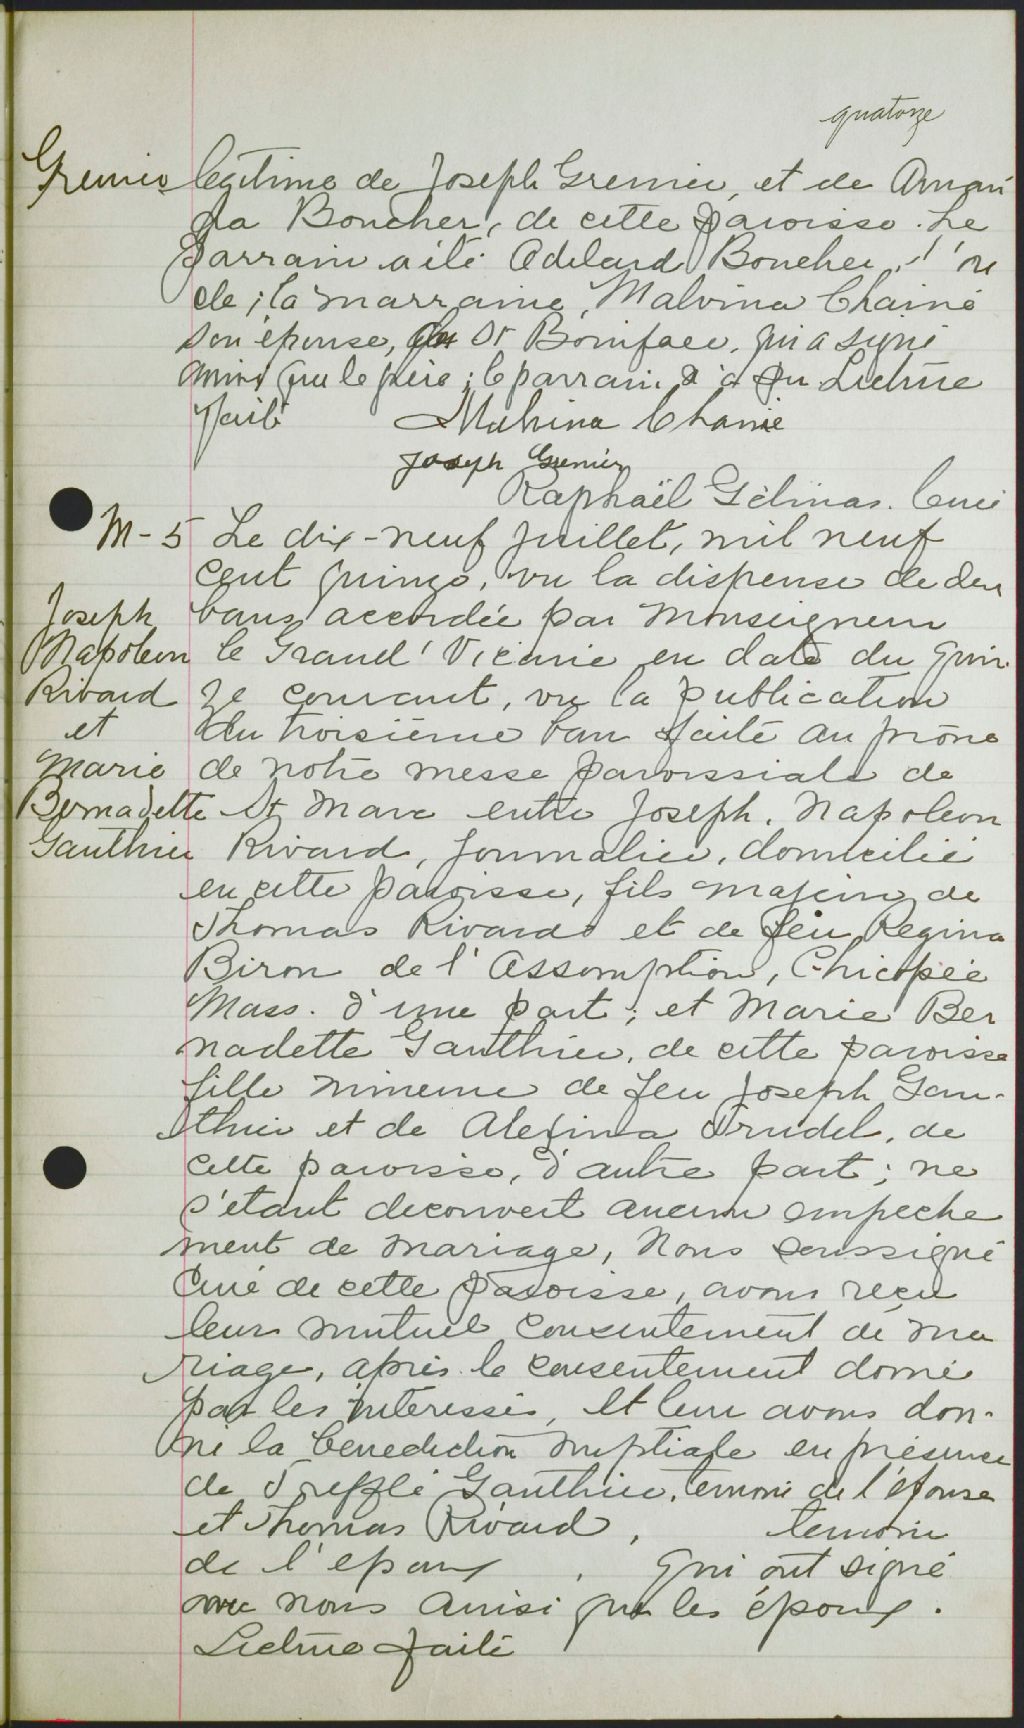 quatorze
Grenier légitime de Joseph Grenier, et de Aman
da Boucher, de cette paroisse. Le
parrain a été Adelard Boucher, l'on
cle; la marraine, Malvina Chainé
son épouse, de St Boniface, qui a signé
ainsi que le père; le parrain n'a su. Lecture
faite Malvina Chainé
Joseph Grenier
Raphaël Gélinas. Curé
M-5 Le dix-neuf juillet, mil neuf
cent quinze, vu la dispense de deux
Joseph bans accordée par Monseigneur
Napoleon le Grand' Vicaire en date du quin-
Rivard ze courant, vu la publication
et du troisième ban faite au prône
Marie de notre messe paroissiale de
Bernadette St Marc entre Joseph, Napoleon
Gauthier Rivard, Journalier, domicilié
en cette paroisse, fils majeur de
Thomas Rivard et de feu Regina
Biron de l'Assomption, Chicopée
Mass. d'une part; et Marie Ber
nadette Gauthier, de cette paroisse
fille mineure de feu Joseph Gau-
thier et de Alexina Trudel, de
cette paroisse, d'autre part; ne
s'étant decouvert aucun empeche
ment de mariage, Nous soussigné
Curé de cette paroisse, avons reçu
leur mutuel consentement de ma
riage, après le consentement donné
par les intéressés, et leur avons don-
né la benediction nuptiale en présence
de Trefflé Gauthier, temoin de l'épouse
et Thomas Rivard, temoin
de l'epoux, qui ont signé
avec nous ainsi que les époux.
Lecture faite